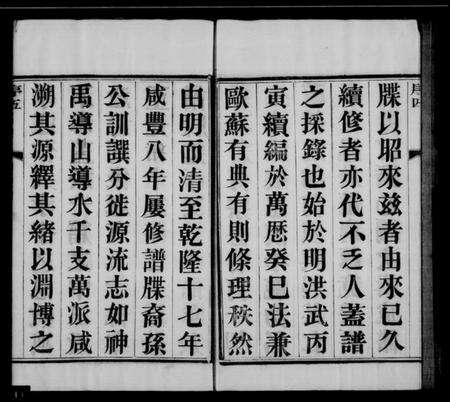 牒以昭來玆者由來已久
續修者亦代不乏人蓋譜
之採錄也始於明洪武丙
寅續編於萬厯癸巳法兼
歐蘇有典有則條理秩然
序四
由明而清至乾隆十七年
咸豐八年屢修譜牒裔孫
公訓譔分徙源流志如神
禹導山導水千支萬派咸
溯其源繹其緒以淵博之
序五